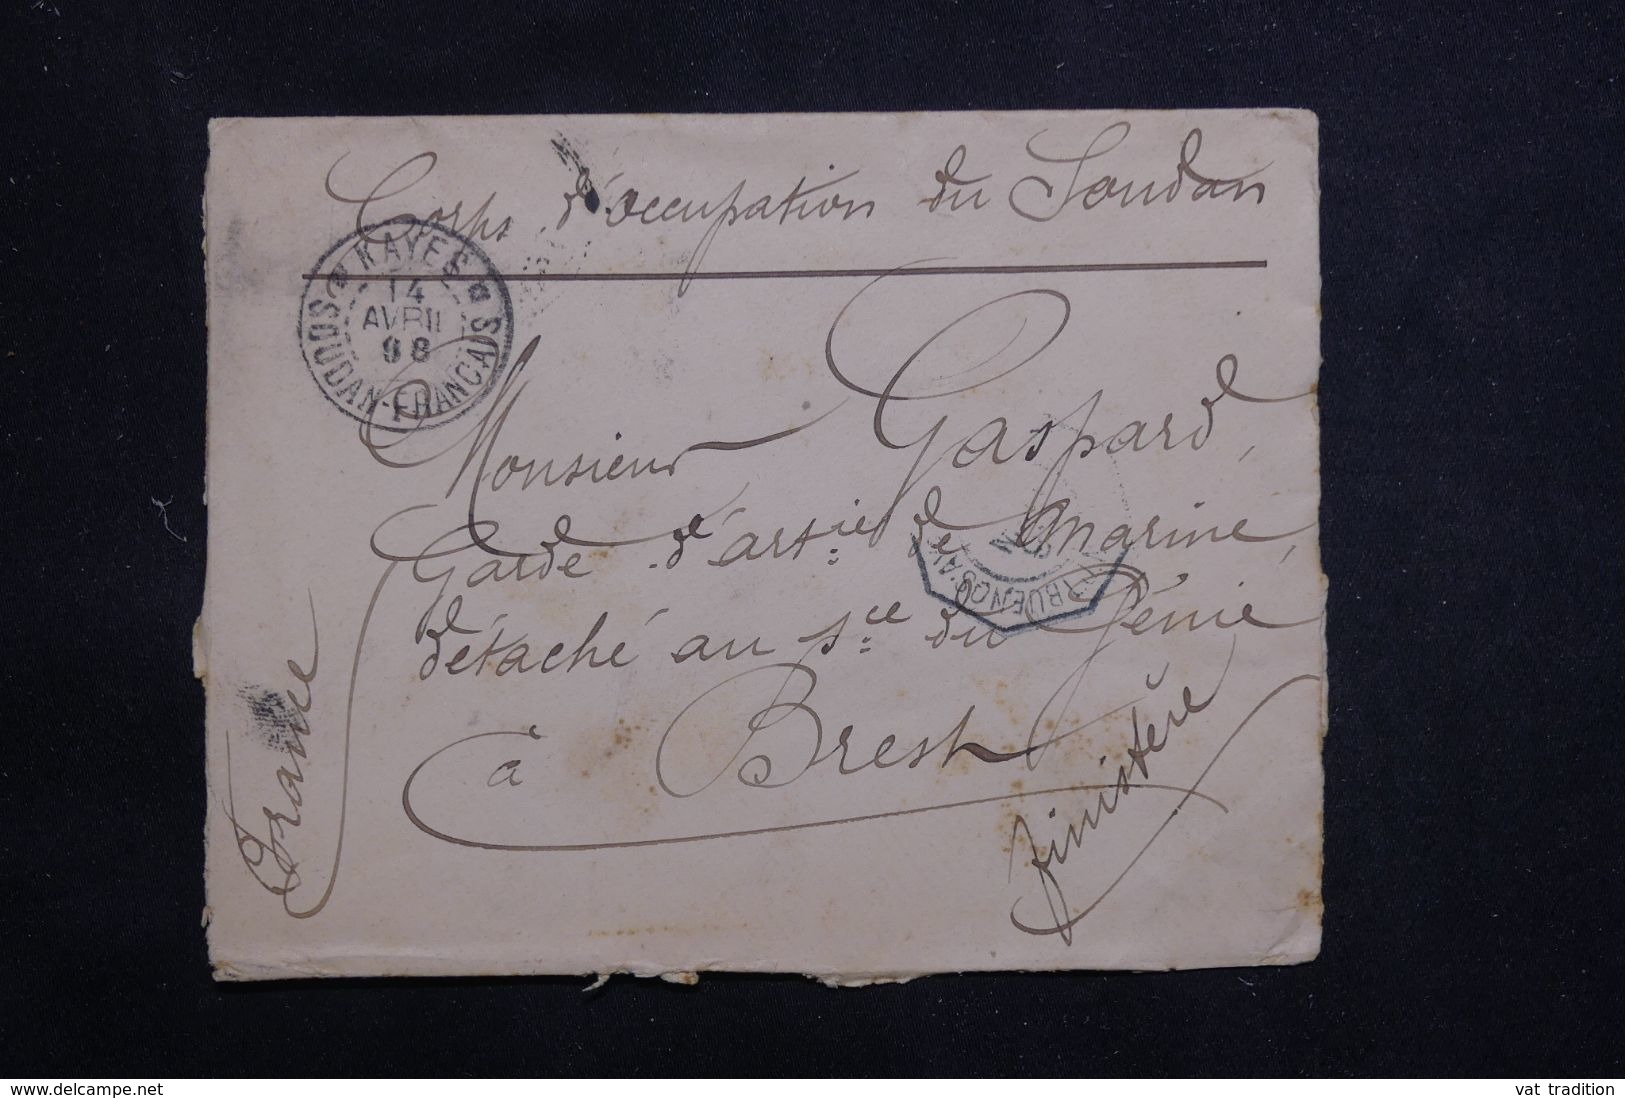 Corps d'occupation du Soudan
KAYES
14
AVRIL
98
SOUDAN-FRANCAIS
Monsieur Gaspard,
Garde d'art.ie de Marine,
détaché au s.ce du Génie
à Brest
Finistère
France
www.delcampe.net
vat_tradition